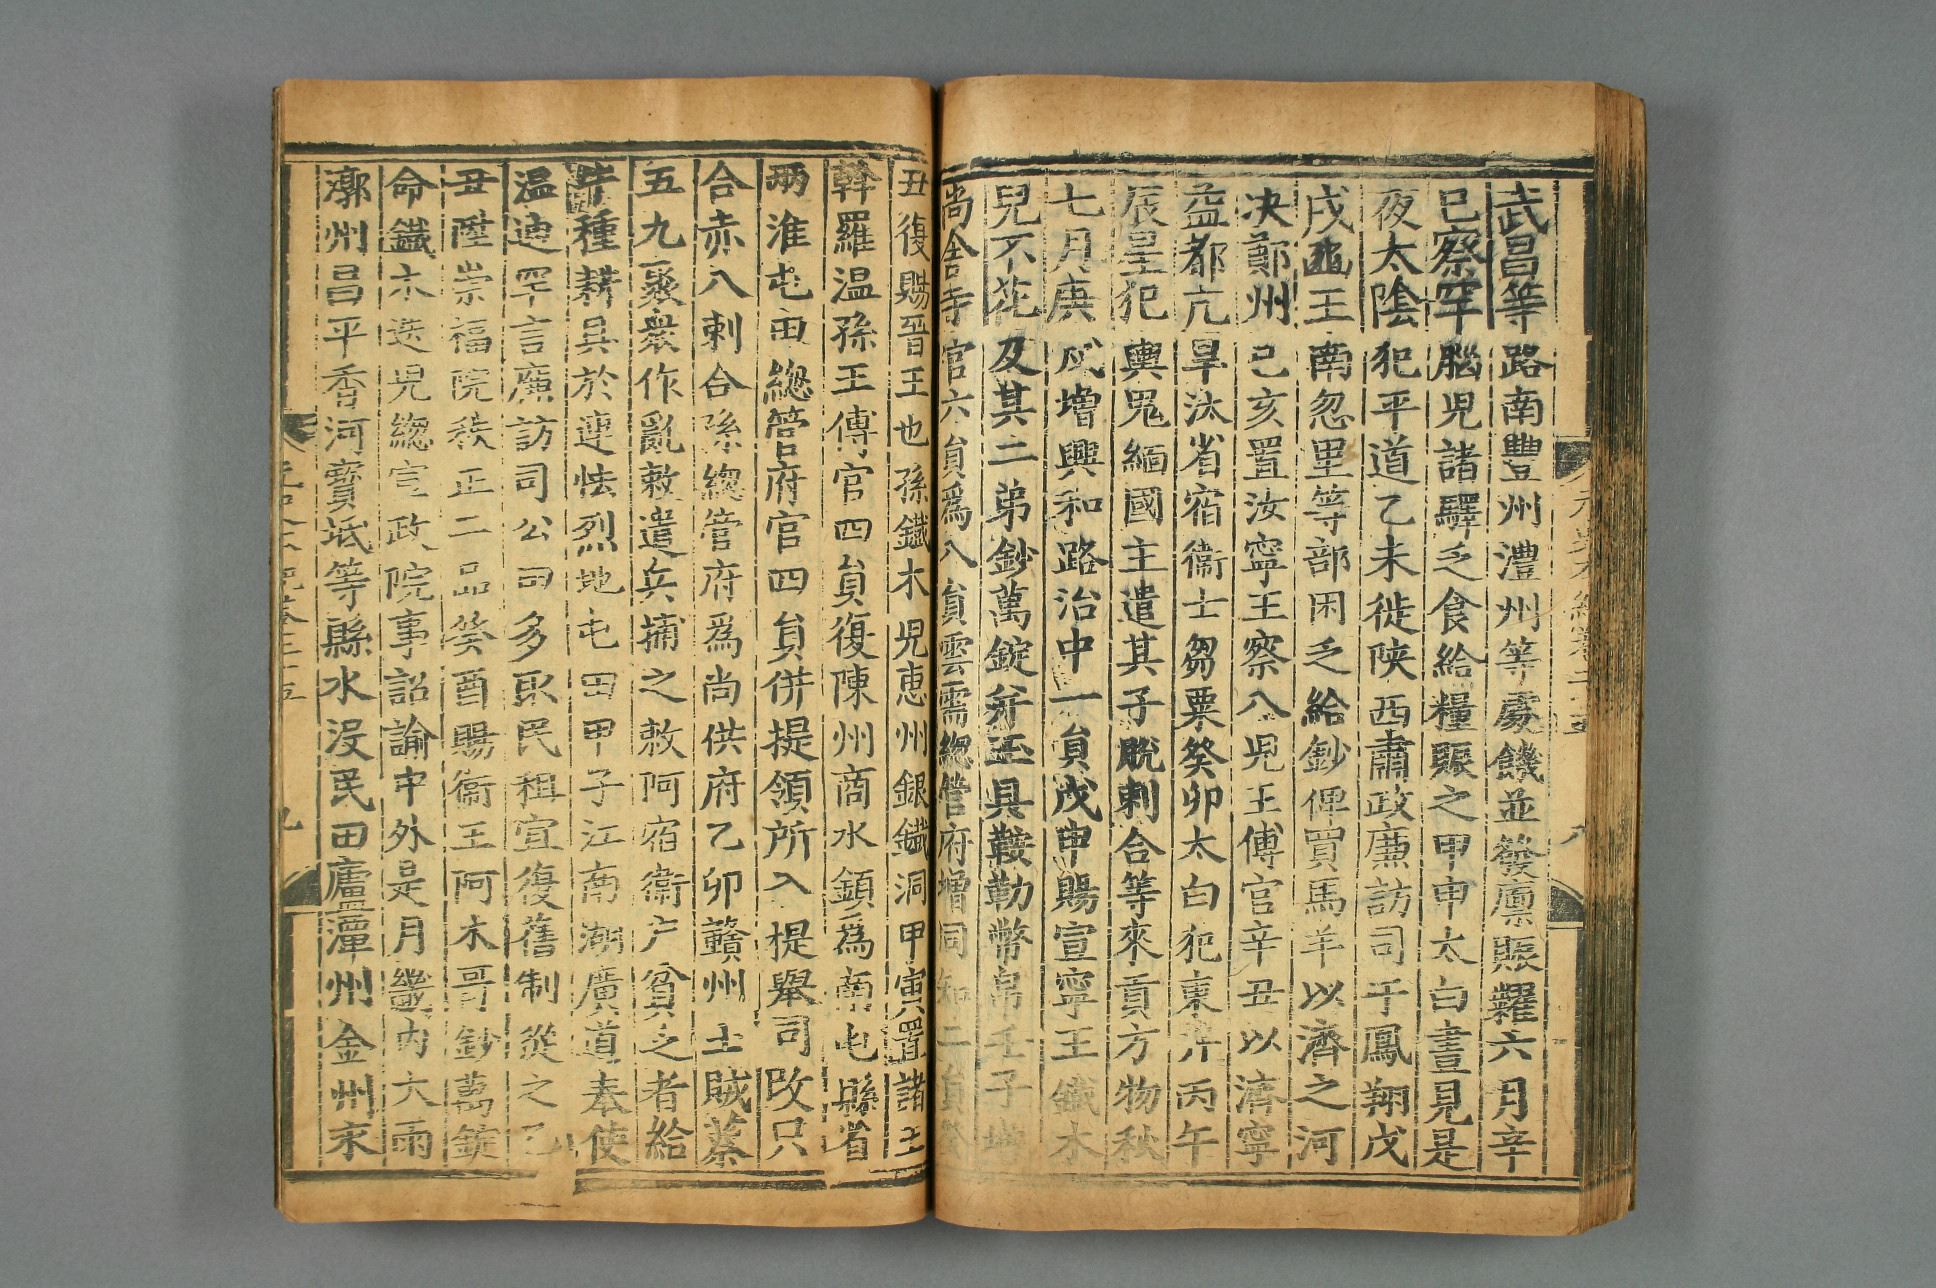 武昌等路南豐州澧州等處饑並發廩賑糶六月辛
巳察罕腦兒諸驛乏食給糧賑之甲申太白晝見是
夜太陰犯平道乙未徙陝西肅政廉訪司于鳳翔戊
戌邕王南忽里等部困乏給鈔俾買馬羊以濟之河
決鄭州己亥置汝寧王察八兒王傅官辛丑以濟寧
益都亢旱汰省宿衞士芻粟癸卯太白犯東井丙午
辰星犯輿鬼緬國主遣其子脫剌合等來貢方物秋
七月庚戌增興和路治中一員戊申賜宣寧王鐵木
兒不花及其二弟鈔萬錠并玉具鞍勒幣帛壬子增
尚舍寺官六員爲八員雲需總管府增同知二員癸
丑復賜晉王也孫鐵木兒惠州銀鐵洞甲寅置諸王
斡羅温孫王傅官四員復陳州商水鎮爲南屯縣省
兩淮屯田總管府官四員併提領所入提舉司改只
合赤八剌合孫總管府爲尚供府乙卯贛州土賊蔡
五九聚衆作亂敕遣兵捕之敕阿宿衞户貧乏者給
牛種耕具於連怯烈地屯田甲子江南湖廣道奉使
温迪罕言廉訪司公田多取民租宜復舊制從之乙
丑陞崇福院秩正二品癸酉賜衞王阿木哥鈔萬錠
命鐵木迭兒總宣政院事詔諭中外是月畿內大雨
漷州昌平香河寶坻等縣水沒民田廬潭州金州永